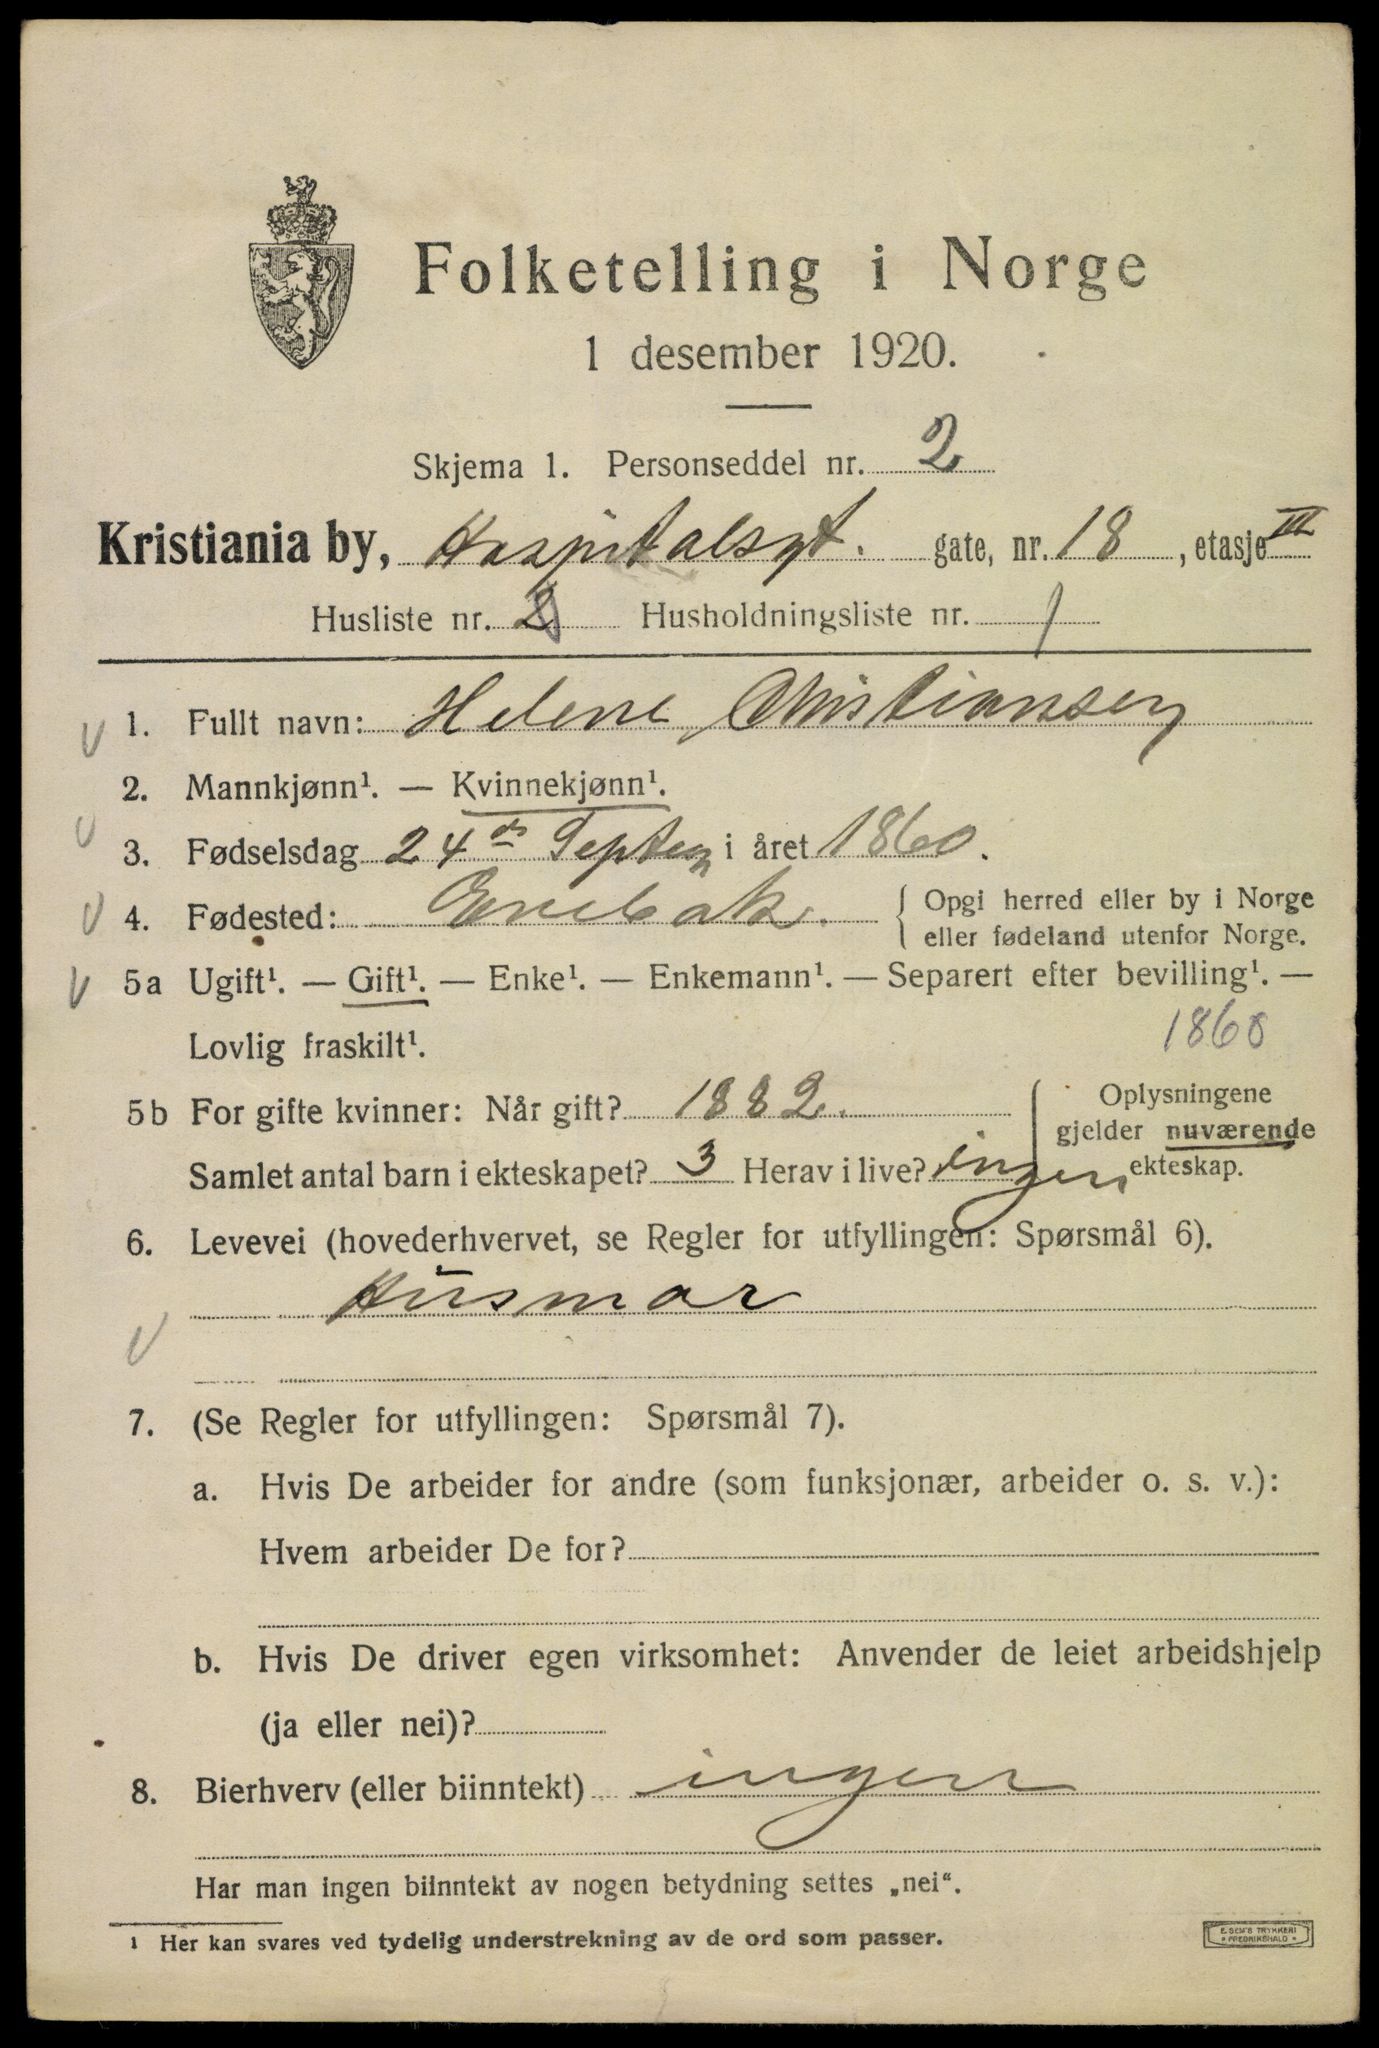 Folketelling i Norge
1 desember 1920.
Skjema 1. Personseddel nr. 2
Kristiania by, Hospitalsgt. gate, nr. 18, etasje III
Husliste nr. 2 Husholdningsliste nr. 1
1. Fullt navn: Helene Christiansen
2. Mannkjønn¹. — Kvinnekjønn¹.
3. Fødselsdag 24 de Septem i året 1860.
4. Fødested: Enebak. { Opgi herred eller by i Norge
eller fødeland utenfor Norge.
5a Ugift¹. — Gift¹. — Enke¹. — Enkemann¹. — Separert efter bevilling¹. —
Lovlig fraskilt¹. 1860
5b For gifte kvinner: Når gift? 1882. Oplysningene
gjelder nuværende
Samlet antal barn i ekteskapet? 3 Herav i live? ingen ekteskap.
6. Levevei (hovederhvervet, se Regler for utfyllingen: Spørsmål 6).
Husmor
7. (Se Regler for utfyllingen: Spørsmål 7).
a. Hvis De arbeider for andre (som funksjonær, arbeider o. s. v.):
Hvem arbeider De for?
b. Hvis De driver egen virksomhet: Anvender de leiet arbeidshjelp
(ja eller nei)?
8. Bierhverv (eller biinntekt) ingen
Har man ingen biinntekt av nogen betydning settes „nei“.
1 Her kan svares ved tydelig understrekning av de ord som passer.
E. SEM'S TRYKKERI
FREDRIKSHALD